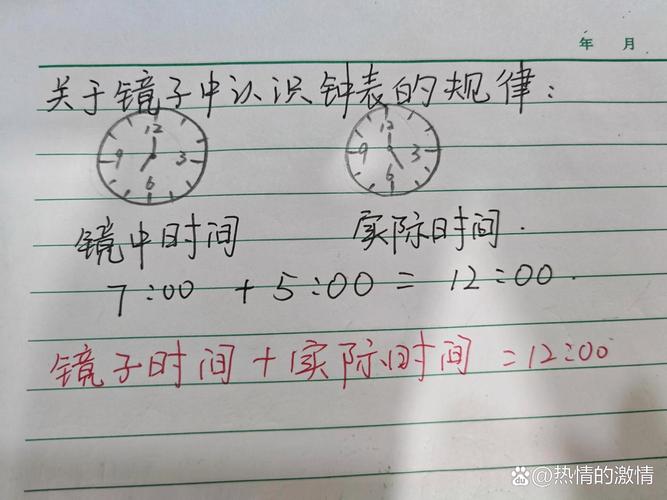 年 月
关于镜子中认识钟表的规律：
12 12
9 3 9 3
6 6
镜中时间 实际时间.
7:00 + 5:00 = 12:00.
镜子时间+实际时间=12:00
@热情的激情